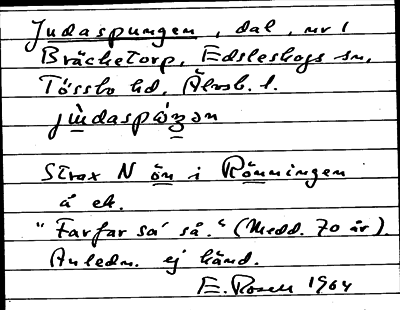 Judaspungen, dal, nr 1
Bräcketorp, Edsleskogs sn,
Tössbo hd, Älvsb. l.
jùdaspúŋən
Strax N ön i Rönningen
å ek.
"Farfar sa' så." (Medd. 70 år).
Anledn. ej känd.
E. Rosell 1964